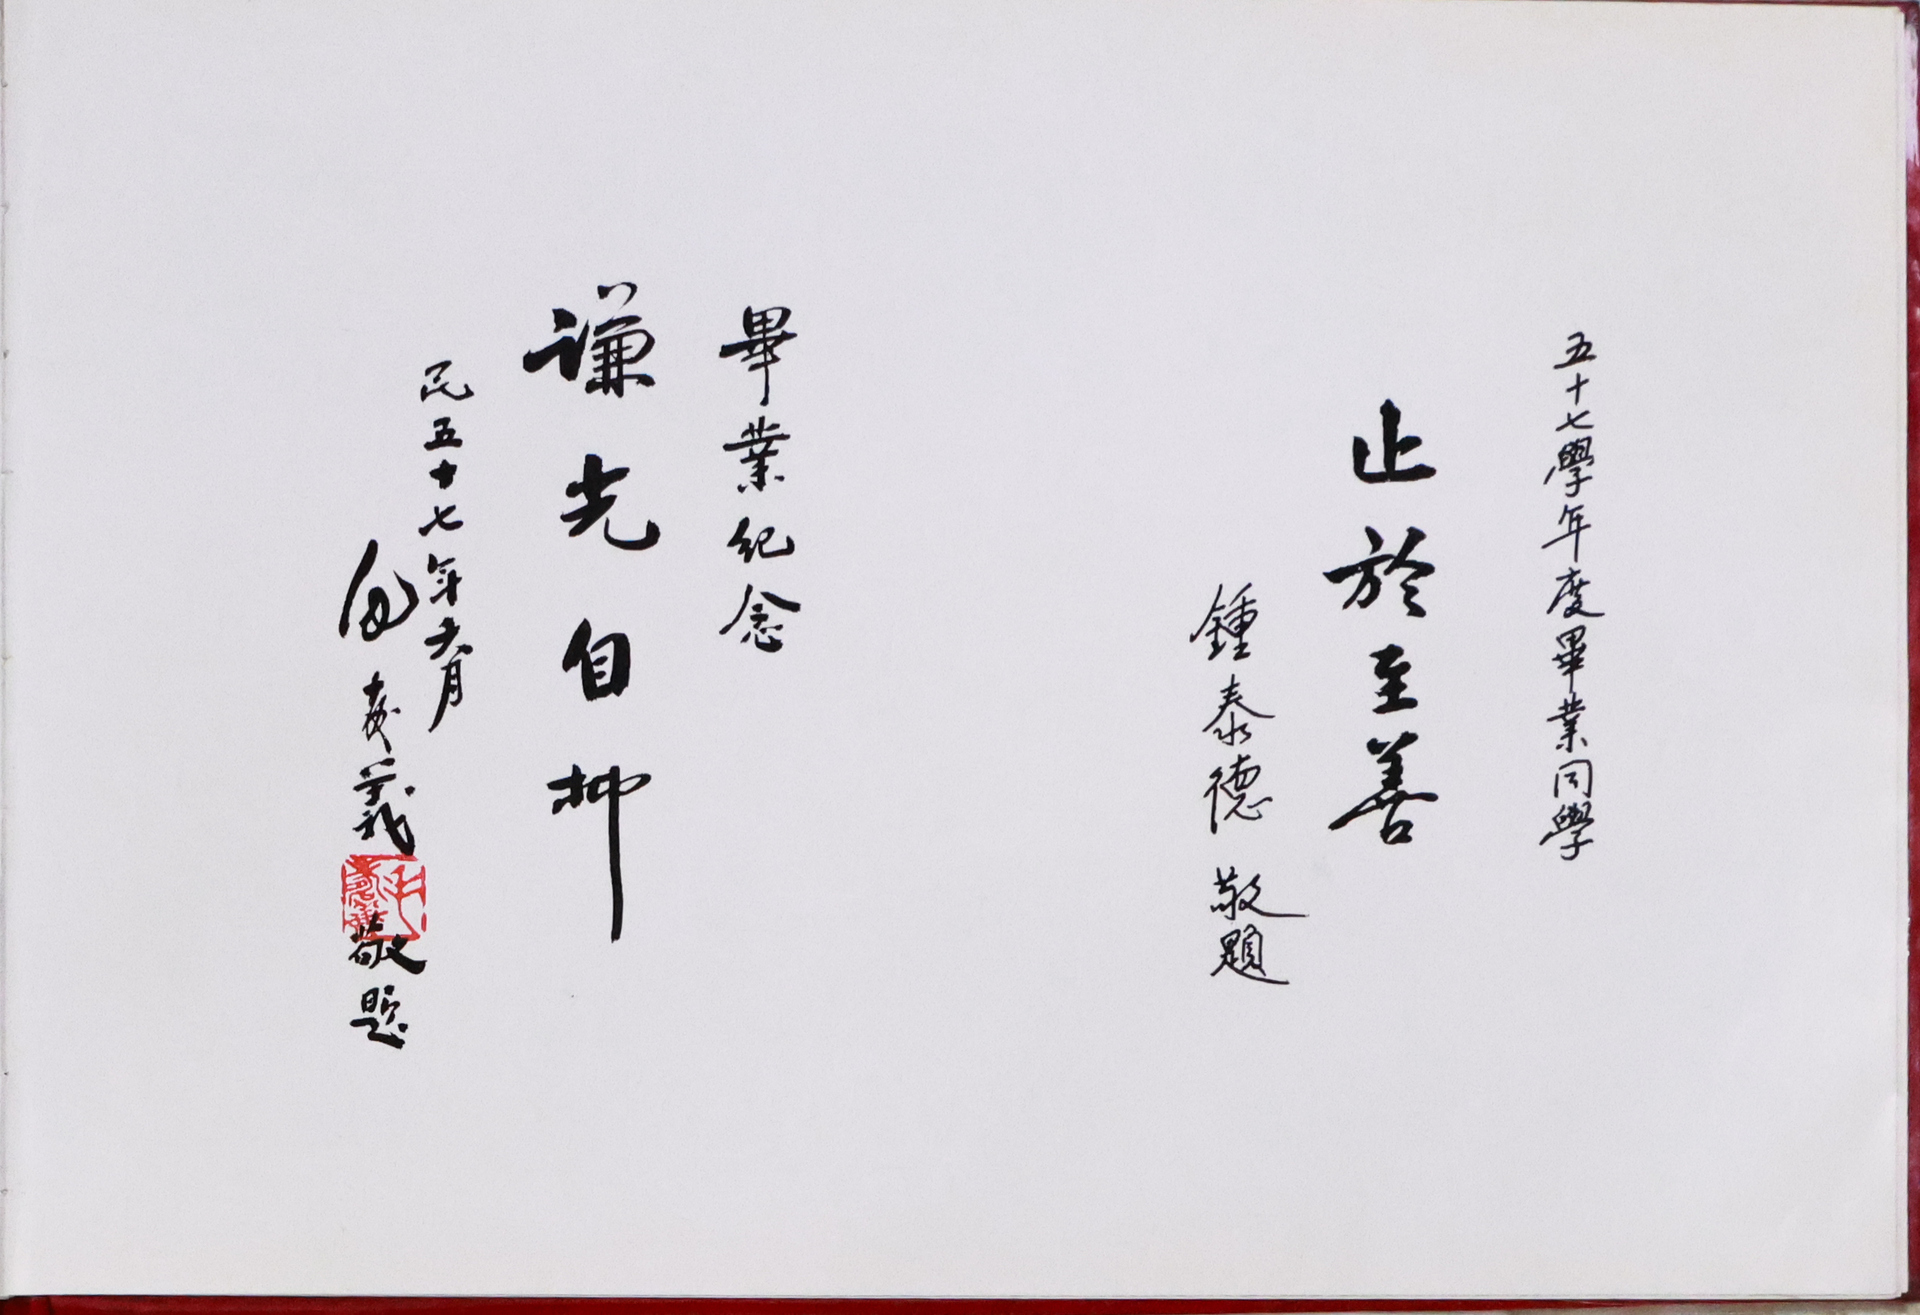 五十七學年度畢業同學
止於至善
鍾泰德 敬題
畢業紀念
謙光自抑
民五十七年六月
義 敬題